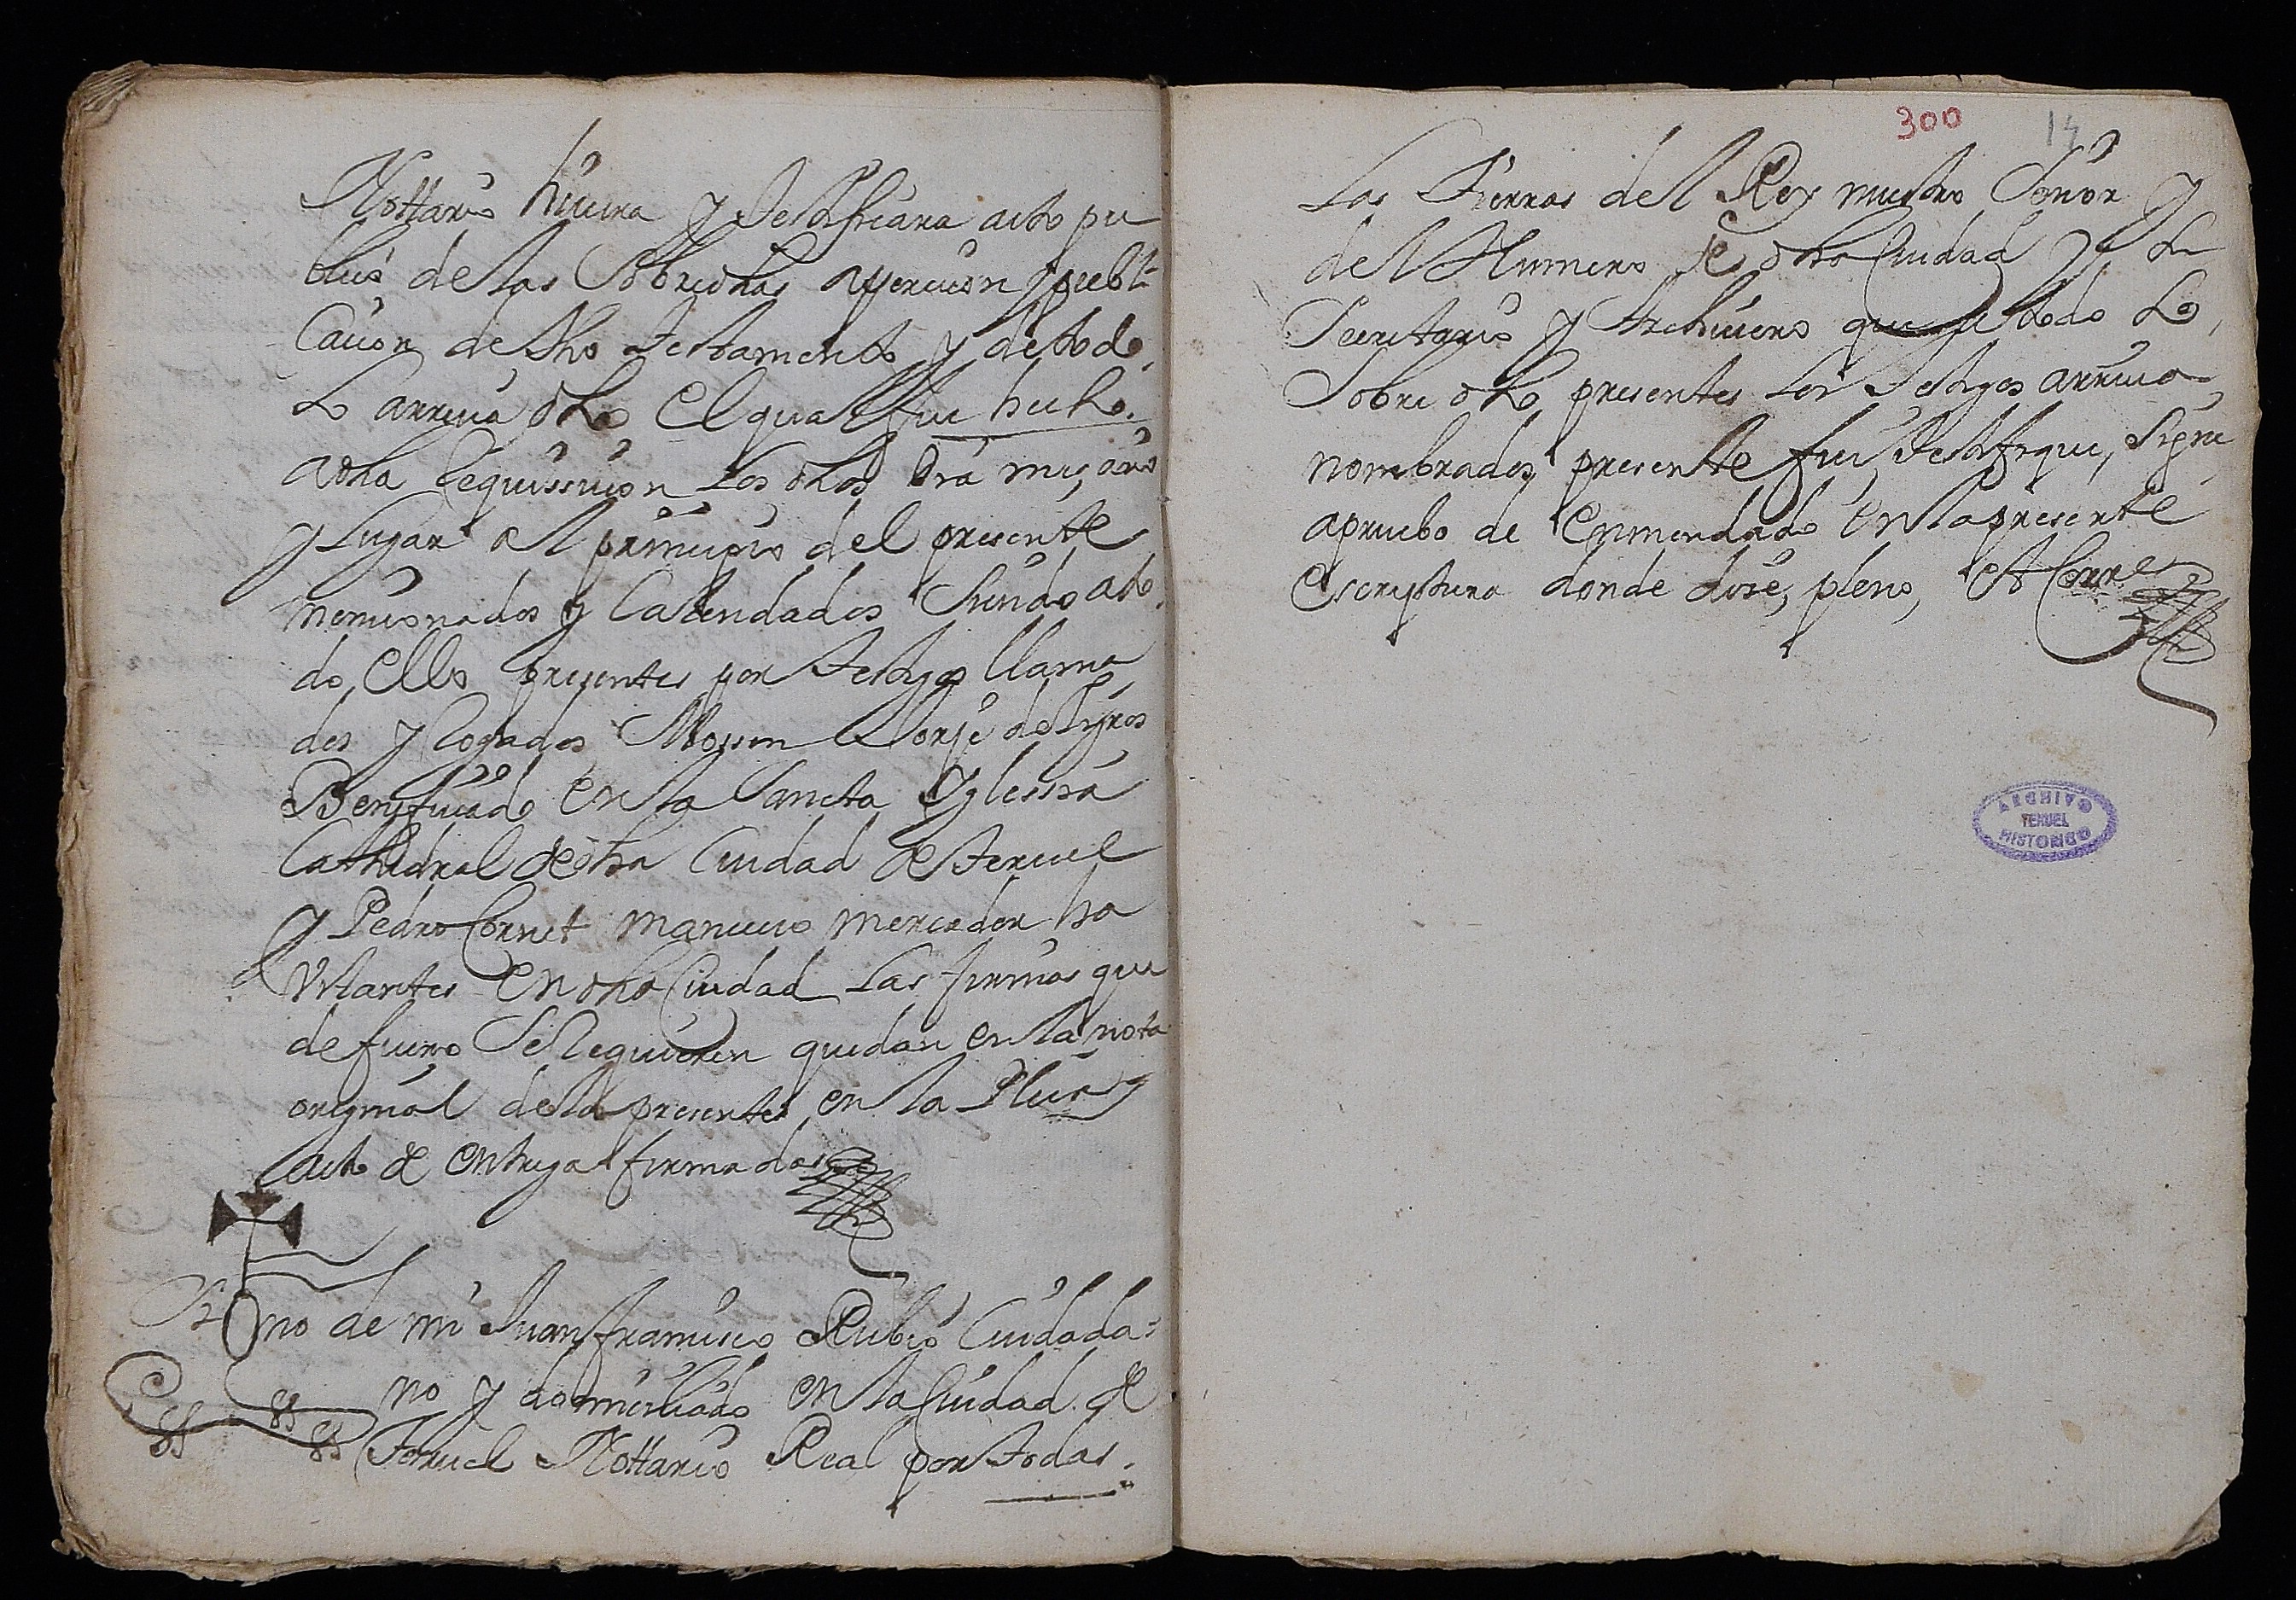 Nottario hiciera y testificara acto pu
blico de las Sobredhas apercion y publi
cacion de dho testamento y de todo
Lo arriva dho El qual fue hecho.
a dha Requissicion Los dhos Dia mes, año
y Lugar al principio del presente
mencionados y Calendados Siendo ato
do, Ello presentes por testigos llama
dos y Rogados Mossen Jorje de
Beneficiado en la Sancta Yglessia
Cathedral de dha Ciudad de Teruel
y Pedro Cornet mancevo mercader ha
vitantes en dha Ciudad Las firmas que
de fuero Se Requieren quedan en la nota
original de la presente, en la Plica y
acto de entrega firmadas
Sig no de mi Juan francisco Rubio Ciudada=
no y domiciliado en la Ciudad de
Teruel Nottario Real por todas.
300 14
Las tierras del Rey nuestro Señor y
del Numero de dha Ciudad y
Secretario y Archivero que a todo Lo
Sobre dho presentes Los testigos arriva
nombrados presente fui, testifique, Signe
apruebo de enmendado en la presente
escryptura donde dize, pleno, et Cerre
ARCHIVO
TERUEL
HISTORICO